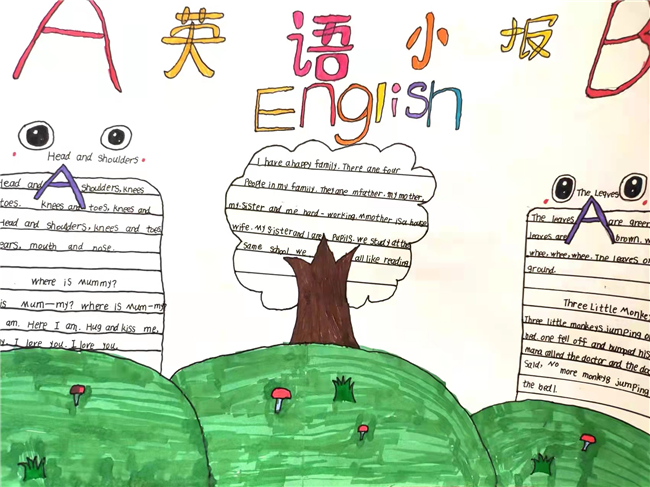 A 英语小报 B
English
Head and shoulders
A
Head and shoulders, knees
toes. knees and toes, knees and
Head and shoulders, knees and toes
ears, mouth and nose.
where is mummy?
is mum-my? where is mum-my
am. Here I am. Hug and kiss me,
I love you. I love you.
I have a happy family. There are four
People in my family. They are mfather. my mother,
my sister and me hard-working. Mmother is a house
wife. My sister and I are Pupils. we study at the
same school we all like reading.
The Leaves
A
The leaves are green
leaves are brown, w
whee, whee, whee. The leaves on
ground.
Three Little Monkey
Three little monkeys jumping o
bed. one fell off and bumped his
mama called the doctor and the do
Said, No more monkeys jumping
the bed!.